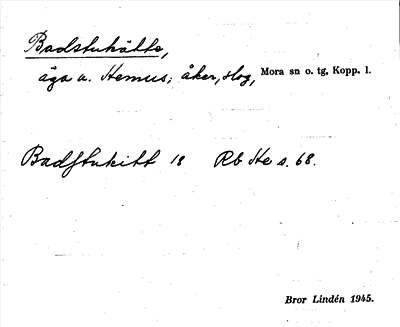 Badstukätte,
äga u. Hemus; åker, slog, Mora sn o. tg, Kopp. l.
Badstukitt 18 Rb He s. 68.
Bror Lindén 1945.